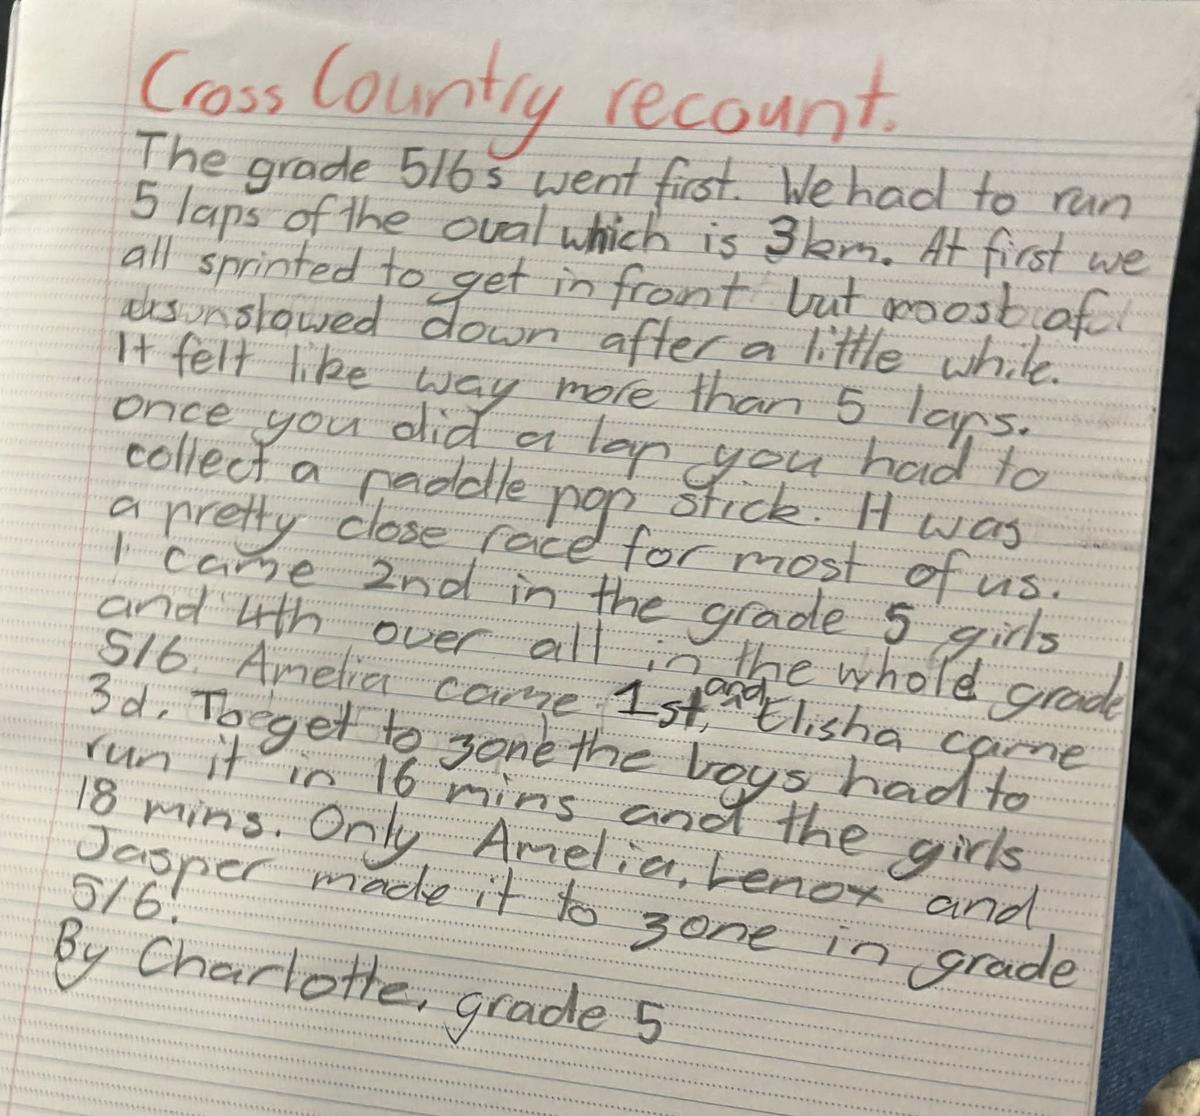 Cross Country recount.
The grade 5/6s went first. We had to run
5 laps of the oval which is 3km. At first we
all sprinted to get in front but moost of
us slowed down after a little while.
It felt like way more than 5 laps.
once you did a lap you had to
collect a paddle pop stick. It was
a pretty close race for most of us.
I came 2nd in the grade 5 girls
and 4th over all in the whole grade
5/6. Amelia came 1st, and Elisha came
3d. To get to zone the boys had to
run it in 16 mins and the girls
18 mins. Only Amelia, Lenox and
Jasper made it to zone in grade
5/6!
By Charlotte, grade 5